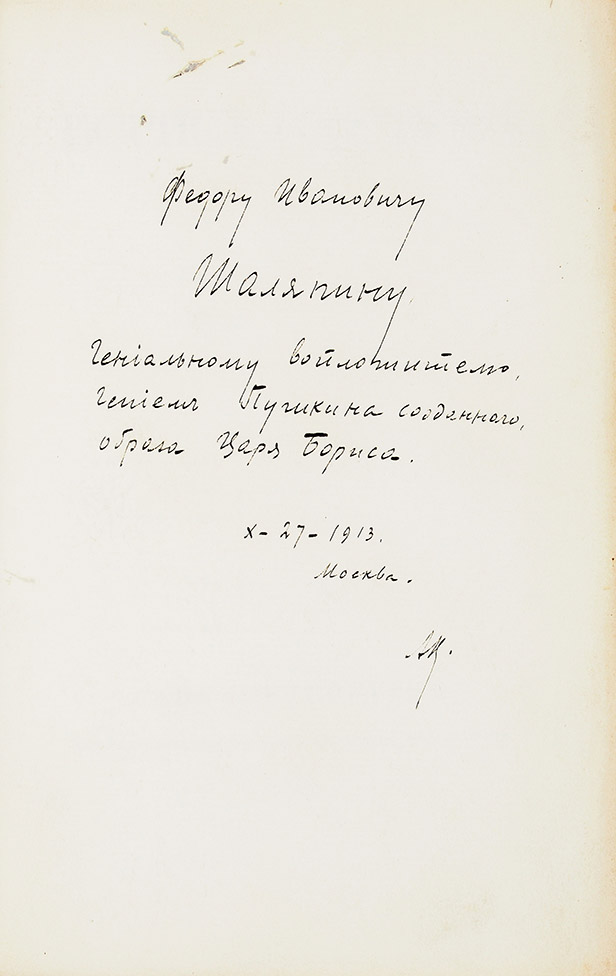 Федору Ивановичу
Шаляпину
Геніальному воплотителю,
Геніемъ Пушкина созданнаго,
образа Царя Бориса.
X - 27 - 1913.
Москва.